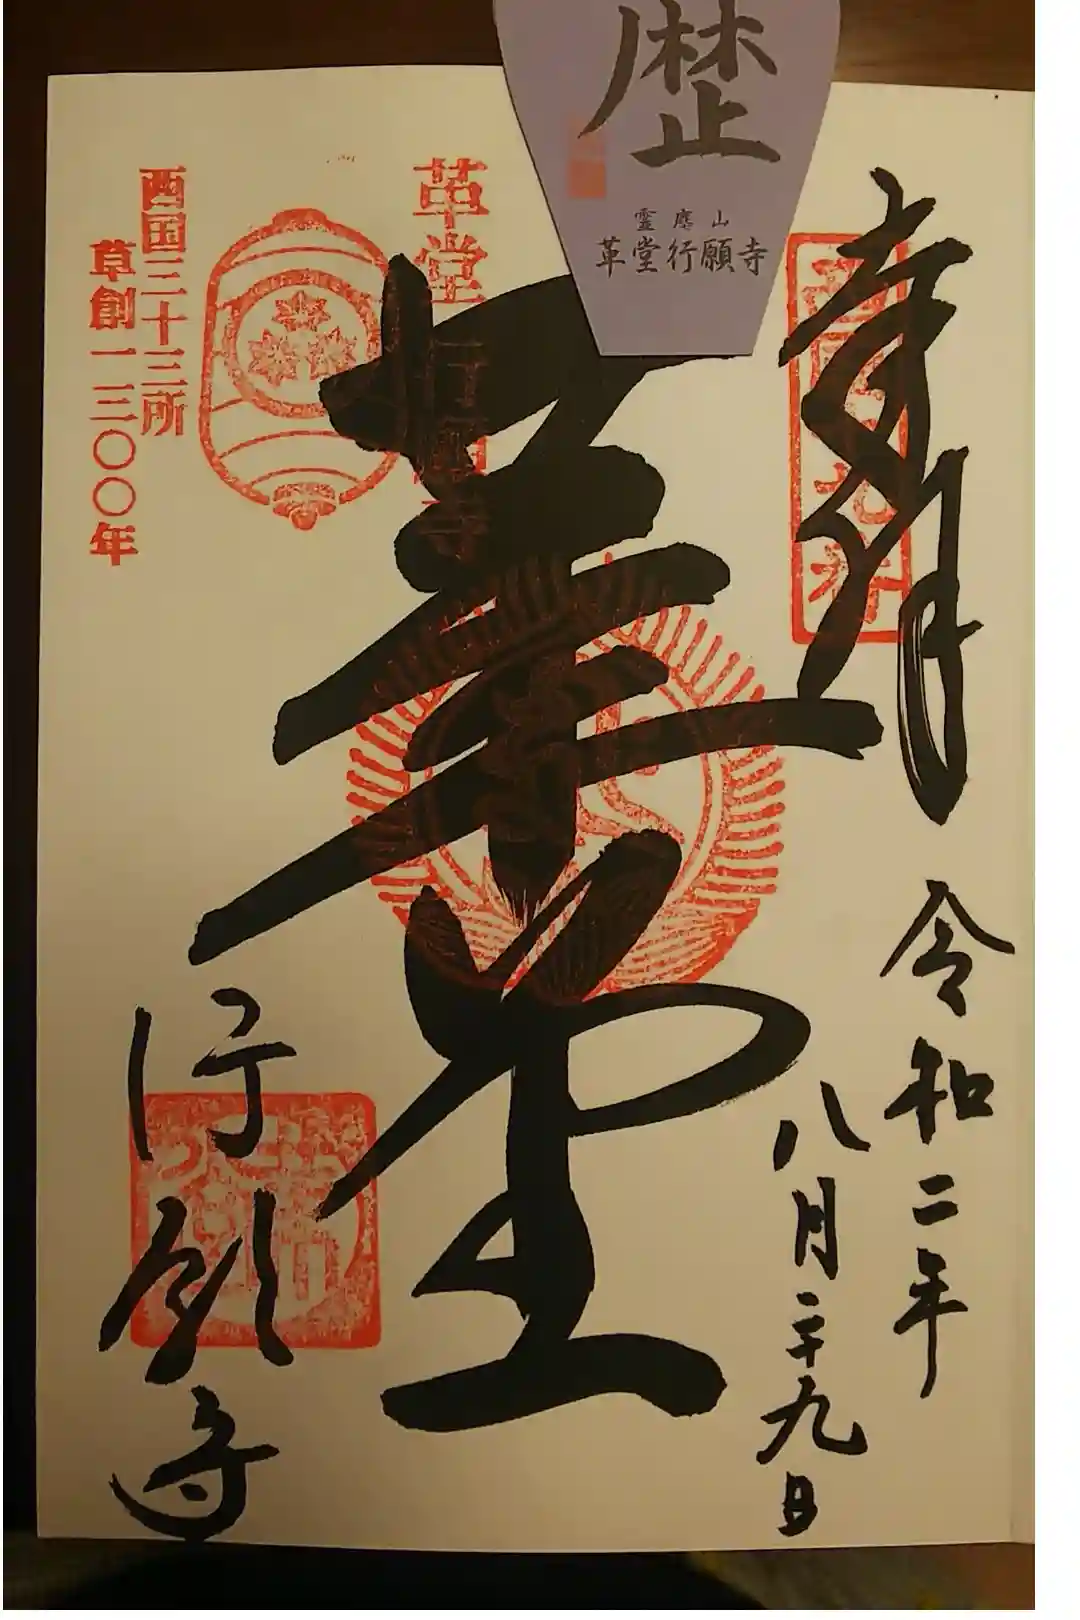 歴
霊麀山
革堂行願寺
奉拝
令和二年
八月二十九日
革堂行願寺
革堂
行願寺
西国三十三所
草創一三〇〇年